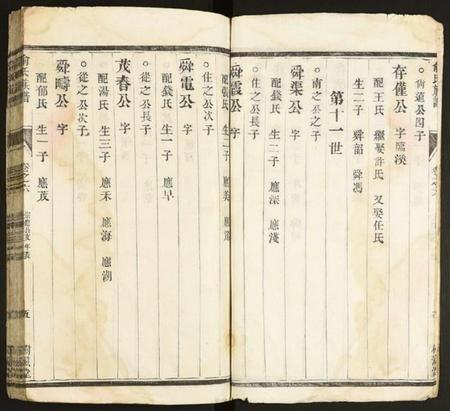 ○尙遠公四子
存僅公 字臨溪
配王氏 繼娶許氏 又娶任氏
生二子 舜韶 舜馮
第十一世
○南之公之子
舜渠公 字
配錢氏 生二子 應深 應淺
○住之公長子
舜霞公 字
配張氏 生二子 應美
○住之公次子
舜電公 字
配錢氏 生一子 應早
○從之公長子
茂春公 字
配湯氏 生三子 應禾 應海 應湖
○從之公次子
舜疇公 字
配郁氏 生一子 應茂
卷之六
五